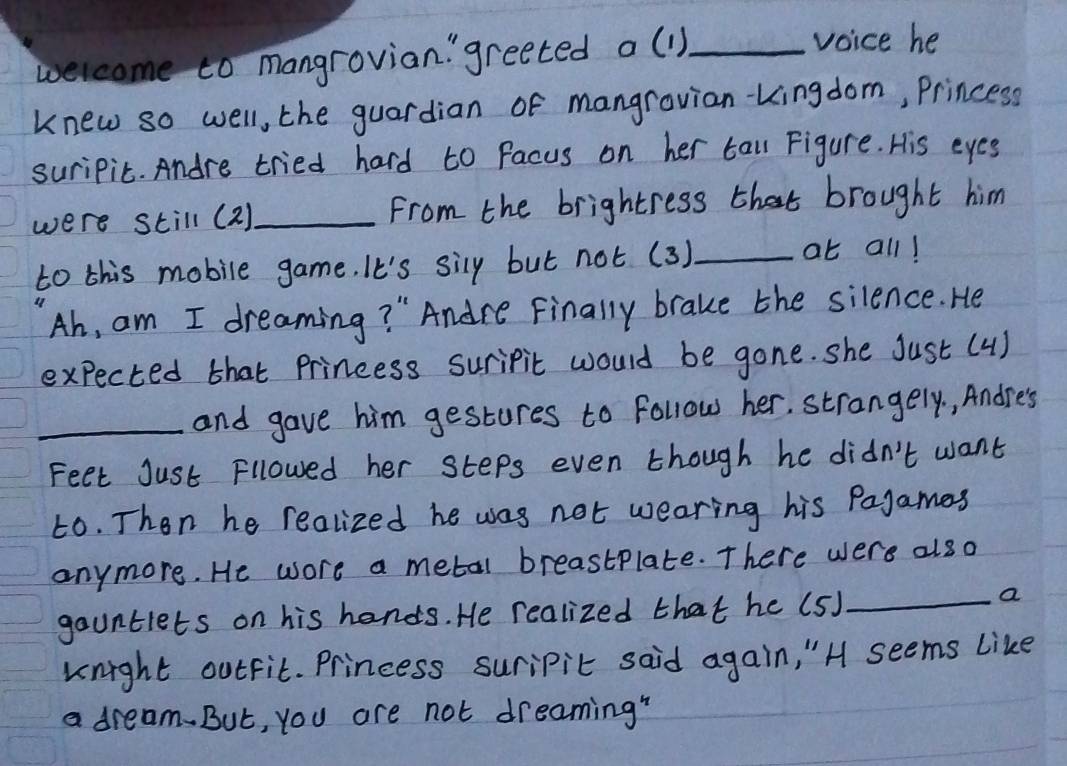 "welcome to mangrovian." greeted a (1)______ voice he
knew so well, the guardian of mangrovian-kingdom, Princess
suripit. Andre tried hard to facus on her tall Figure. His eyes
were still (2)______ From the brightress that brought him
to this mobile game. It's sily but not (3)______ at all!
"Ah, am I dreaming?" Andre Finally brake the silence. He
expected that Princess suripit would be gone. she Just (4)
______ and gave him gestures to follow her. strangely, Andre's
Feet Just Fllowed her steps even though he didn't want
to. Then he realized he was not wearing his Pajamas
anymore. He wore a metal breastplate. There were also
gauntlets on his hands. He realized that he (5)______ a
knight outfit. Princess suripit said again, "H seems Like
a dream. But, you are not dreaming"